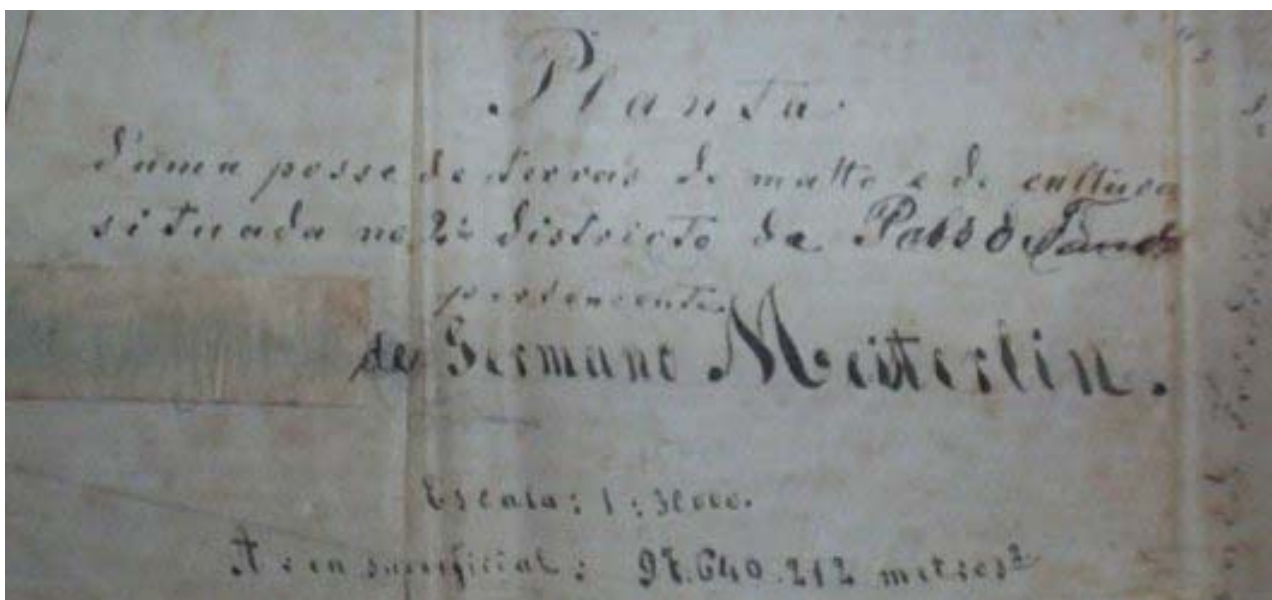 Planta
d'uma posse de terras de matto e de cultura
situada no 2º districto de Passo Fundo
pertencente
de Germano Meisterlin.
Escala: 1:
Area superficial: 98.640.212 metres²